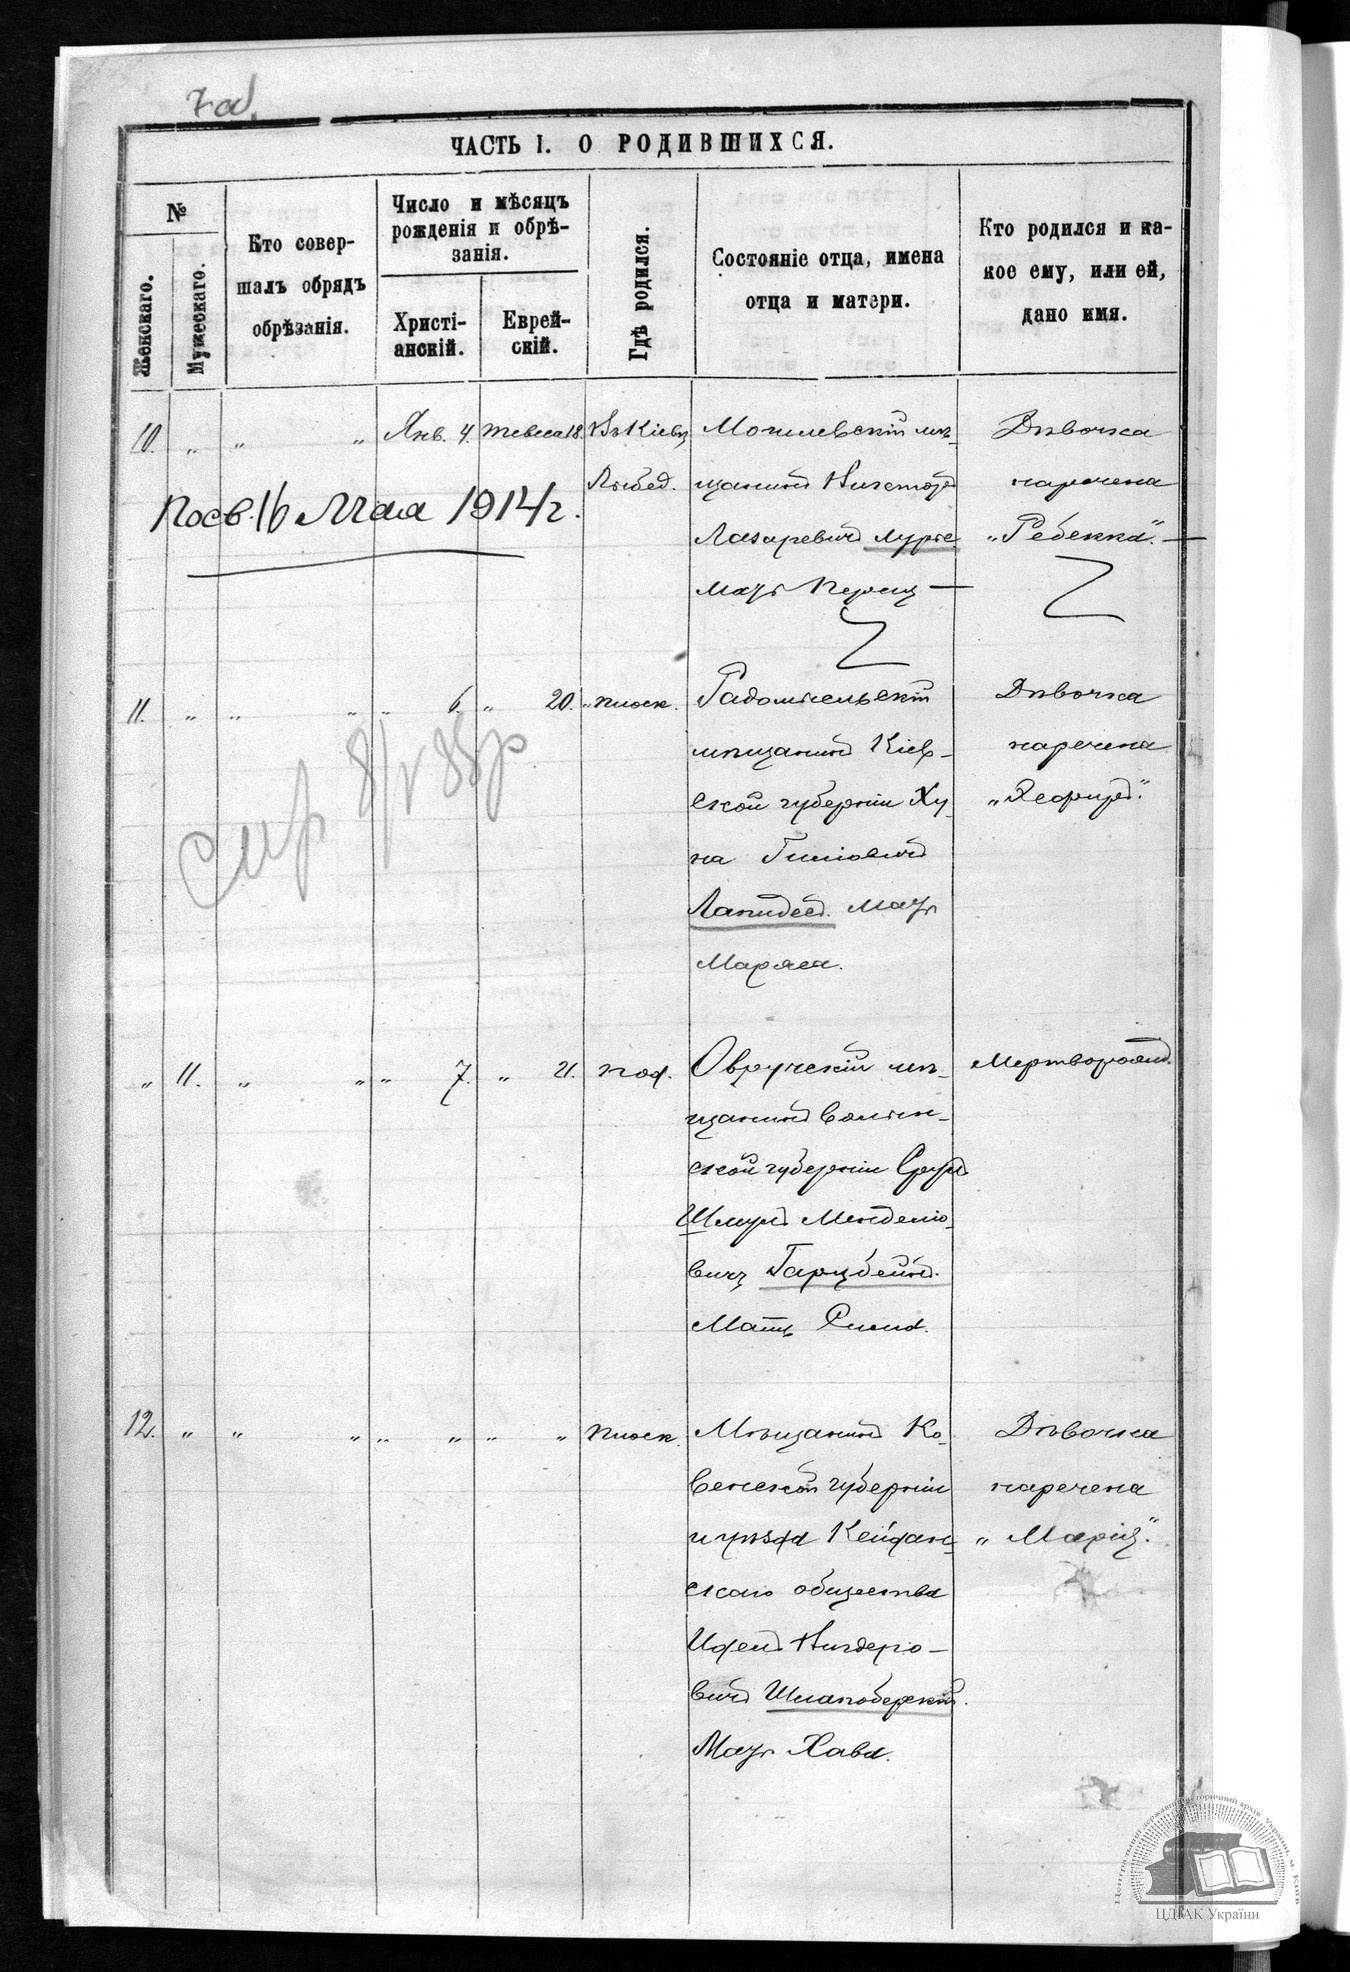 7 об.
ЧАСТЬ I. О РОДИВШИХСЯ.
№
Женскаго.
Мужескаго.
Кто совер-
шалъ обрядъ
обрѣзанія.
Число и мѣсяцъ
рожденія и обрѣ-
занія.
Христі-
анскій.
Еврей-
скій.
Гдѣ родился.
Состояніе отца, имена
отца и матери.
Кто родился и ка-
кое ему, или ей,
дано имя.
10. „ „ „ Янв. 4. Тевеса 18. Въ Кіевѣ
Лыбед.
Могилевскій мѣ-
щанинъ
Лазаревичъ Лурье
Мать Перец —
Дѣвочка
наречена
„Ребекка“. —
Посв. 16 Мая 1914 г.
11. „ „ „ „ 6. „ 20. „ Плоск.
Радомысльскій
мѣщанинъ Кіев-
ской губерніи Ху-
на
Лапидесъ. Мать
Маряса.
Дѣвочка
наречена
„ 11. „ „ „ 7. „ 21. Под.
Овручскій мѣ-
щанинъ Волын-
ской губерніи Сруль
Шмуль Менделіо-
вичъ Гарцбейнъ.
Мать
Мерворожд.
12. „ „ „ „ „ „ „ Плоск.
Мѣщанинъ Ко-
венской губерніи
и уѣзда Кейдан-
скаго общества
Вигдеро-
вичъ Шлапоберскій.
Мать Хава.
Дѣвочка
наречена
„Марія“.
Центральний державний історичний архів України, м. Київ
ЦДІАК України